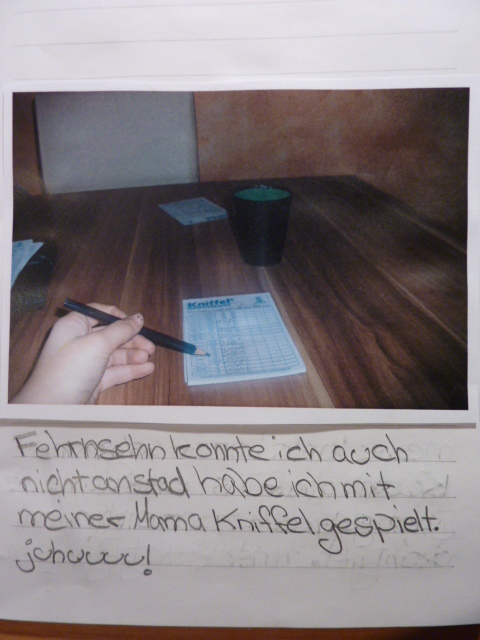 Kniffel
Fehrnsehn konnte ich auch
nicht anstad habe ich mit
meiner Mama Kniffel gespielt.
juhuuuu!